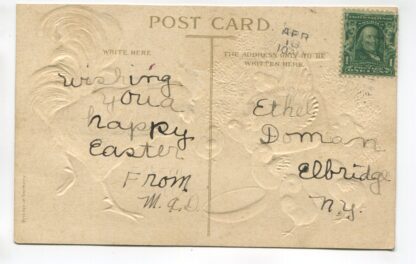 POST CARD.
WRITE HERE
THE ADDRESS ONLY TO BE
WRITTEN HERE.
APR
10
wishing
you a
happy
Easter
From
M.G.D.
Ethel
Doman
Elbridge
N.Y.